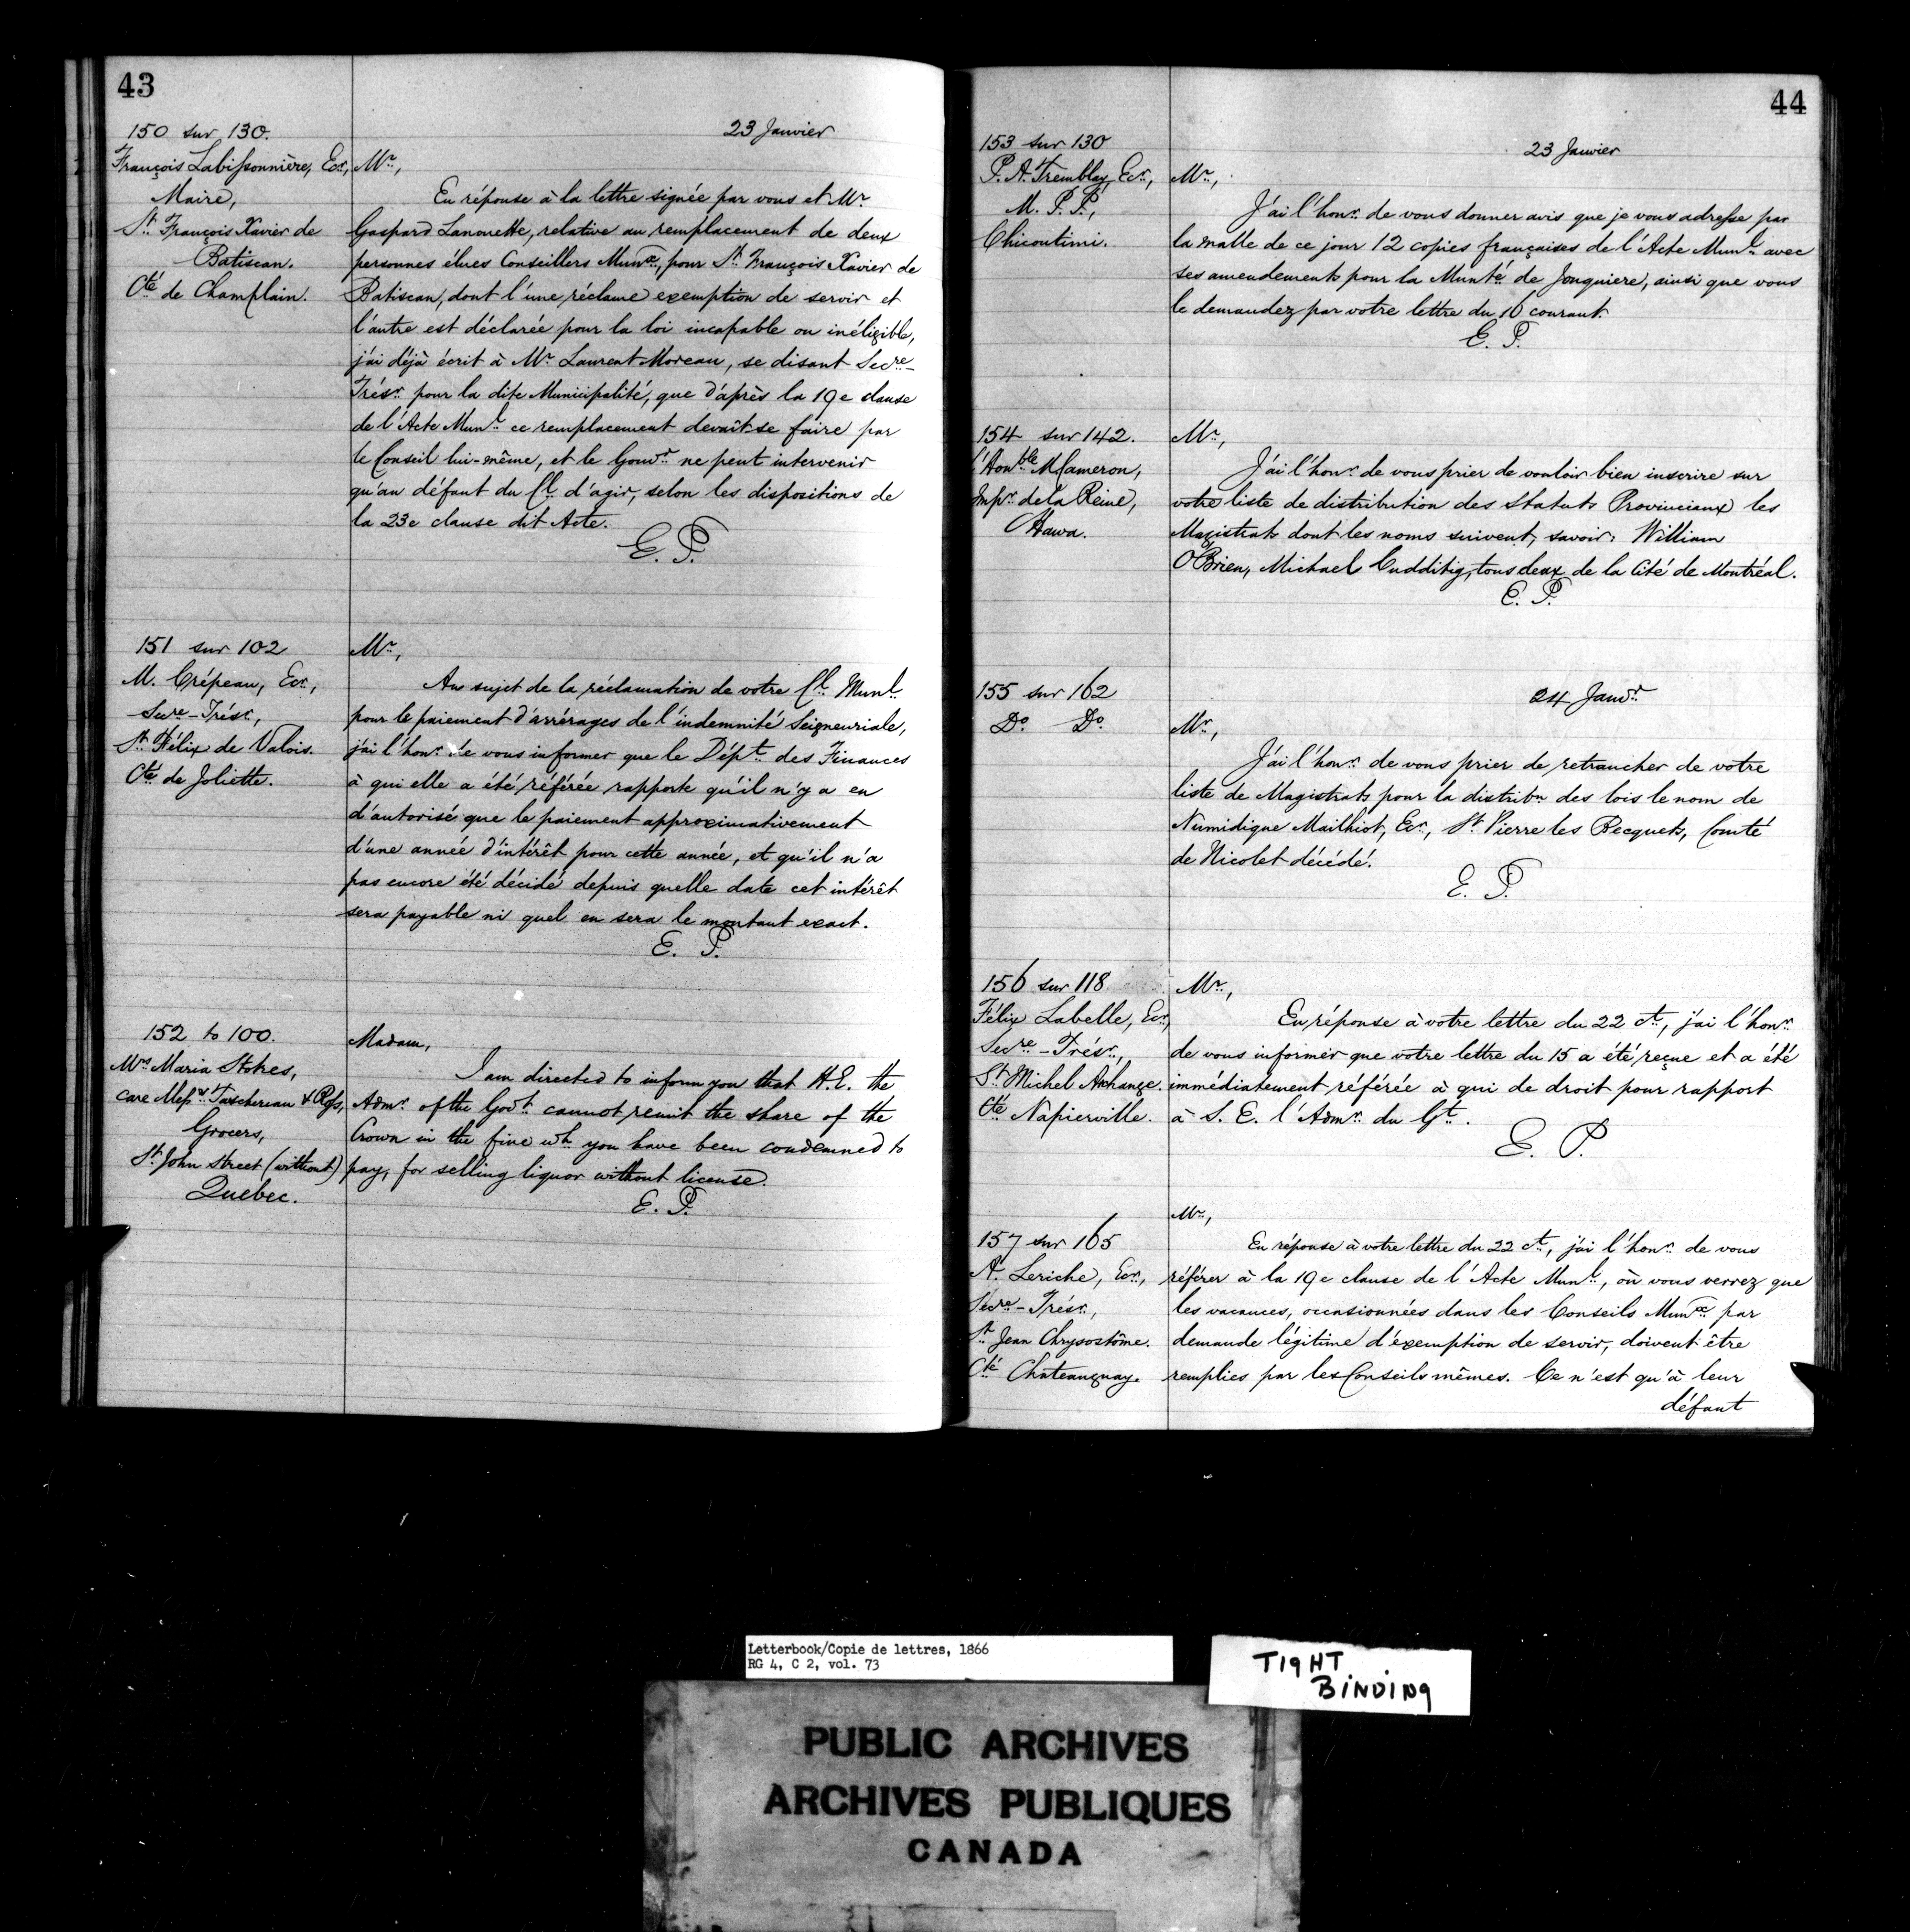 43
150 sur 130.
François Labissonnière, Ecr.,
Maire,
St. François Xavier de
Batiscan.
Cté. de Champlain.
23 Janvier
Mr.,
En réponse à la lettre signée par vous et Mr
Gaspard Lanouette, relative au remplacement de deux
personnes élues Conseillers Munx., pour St. François Xavier de
Batiscan, dont l'une réclame exemption de servir et
l'autre est déclarée pour la loi incapable ou inéligible,
j'ai déjà écrit à Mr. Laurent Moreau, se disant Secre.-
Trésr. pour la dite Municipalité, que d'après la 19e clause
de l'Acte Munl. ce remplacement devait se faire par
le Conseil lui-même, et le Gouvt. ne peut intervenir
qu'au défaut du Cl. d'agir, selon les dispositions de
la 23e clause dit Acte.
E. P.
151 sur 102
M. Crépeau, Ecr.,
Secre.-Trésr.,
St. Félix de Valois.
Cté. de Joliette.
Mr.,
Au sujet de la réclamation de votre Cl. Munl.
pour le paiement d'arrérages de l'indemnité Seigneuriale,
j'ai l'honr. de vous informer que le Dépt. des Finances
à qui elle a été référée rapporte qu'il n'y a eu
d'autorisé que le paiement approximativement
d'une année d'intérêt pour cette année, et qu'il n'a
pas encore été décidé depuis quelle date cet intérêt
sera payable ni quel en sera le montant exact.
E. P.
152 to 100.
Mrs. Maria Stokes,
care Messrs. Taschereau &
Grocers,
St. John Street (without)
Quebec.
Madam,
I am directed to inform you that H.E. the
Admr. of the Govt. cannot remit the share of the
Crown in the fine wh. you have been condemned to
pay, for selling liquor without license.
E. P.
44
153 sur 130
P. A. Tremblay, Ecr.,
M. P. P.,
Chicoutimi.
23 Janvier
Mr.,
J'ai l'honr. de vous donner avis que je vous adresse par
la malle de ce jour 12 copies françaises de l'Acte Munl. avec
ses amendements pour la Munté. de Jonquiere, ainsi que vous
le demandez par votre lettre du 16 courant
E. P.
154 sur 142.
l'Honble M Cameron,
Impr. de la Reine,
Ottawa.
Mr.,
J'ai l'honr. de vous prier de vouloir bien inscrire sur
votre liste de distribution des Statuts Provinciaux les
Magistrats dont les noms suivent, savoir: William
O'Brien, Michael Cuddihy, tous deux de la Cité de Montréal.
E. P.
155 sur 162
Do. Do.
24 Janvr.
Mr.,
J'ai l'honr. de vous prier de retrancher de votre
liste de Magistrats pour la distribn. des lois le nom de
Numidique Mailhiot, Ecr., St. Pierre les Becquets, Comté
de Nicolet décédé.
E. P.
156 sur 118
Félix Labelle, Ecr.,
Secre.-Trésr.,
St. Michel Archange.
Cté. Napierville.
Mr.,
En réponse à votre lettre du 22 ct., j'ai l'honr.
de vous informer que votre lettre du 15 a été reçue et a été
immédiatement référée à qui de droit pour rapport
à S. E. l'Admr. du Gt.
E. P.
157 sur 165
A. Leriche, Ecr.,
Secre.-Trésr.,
St. Jean Chrysostôme.
Cté. Chateauguay.
Mr.,
En réponse à votre lettre du 22 ct., j'ai l'honr. de vous
référer à la 19e clause de l'Acte Munl., où vous verrez que
les vacances, occasionnées dans les Conseils Munx. par
demande légitime d'exemption de servir, doivent être
remplies par les Conseils mêmes. Ce n'est qu'à leur
défaut
Letterbook/Copie de lettres, 1866
RG 4, C 2, vol. 73
TIGHT
BINDING
PUBLIC ARCHIVES
ARCHIVES PUBLIQUES
CANADA